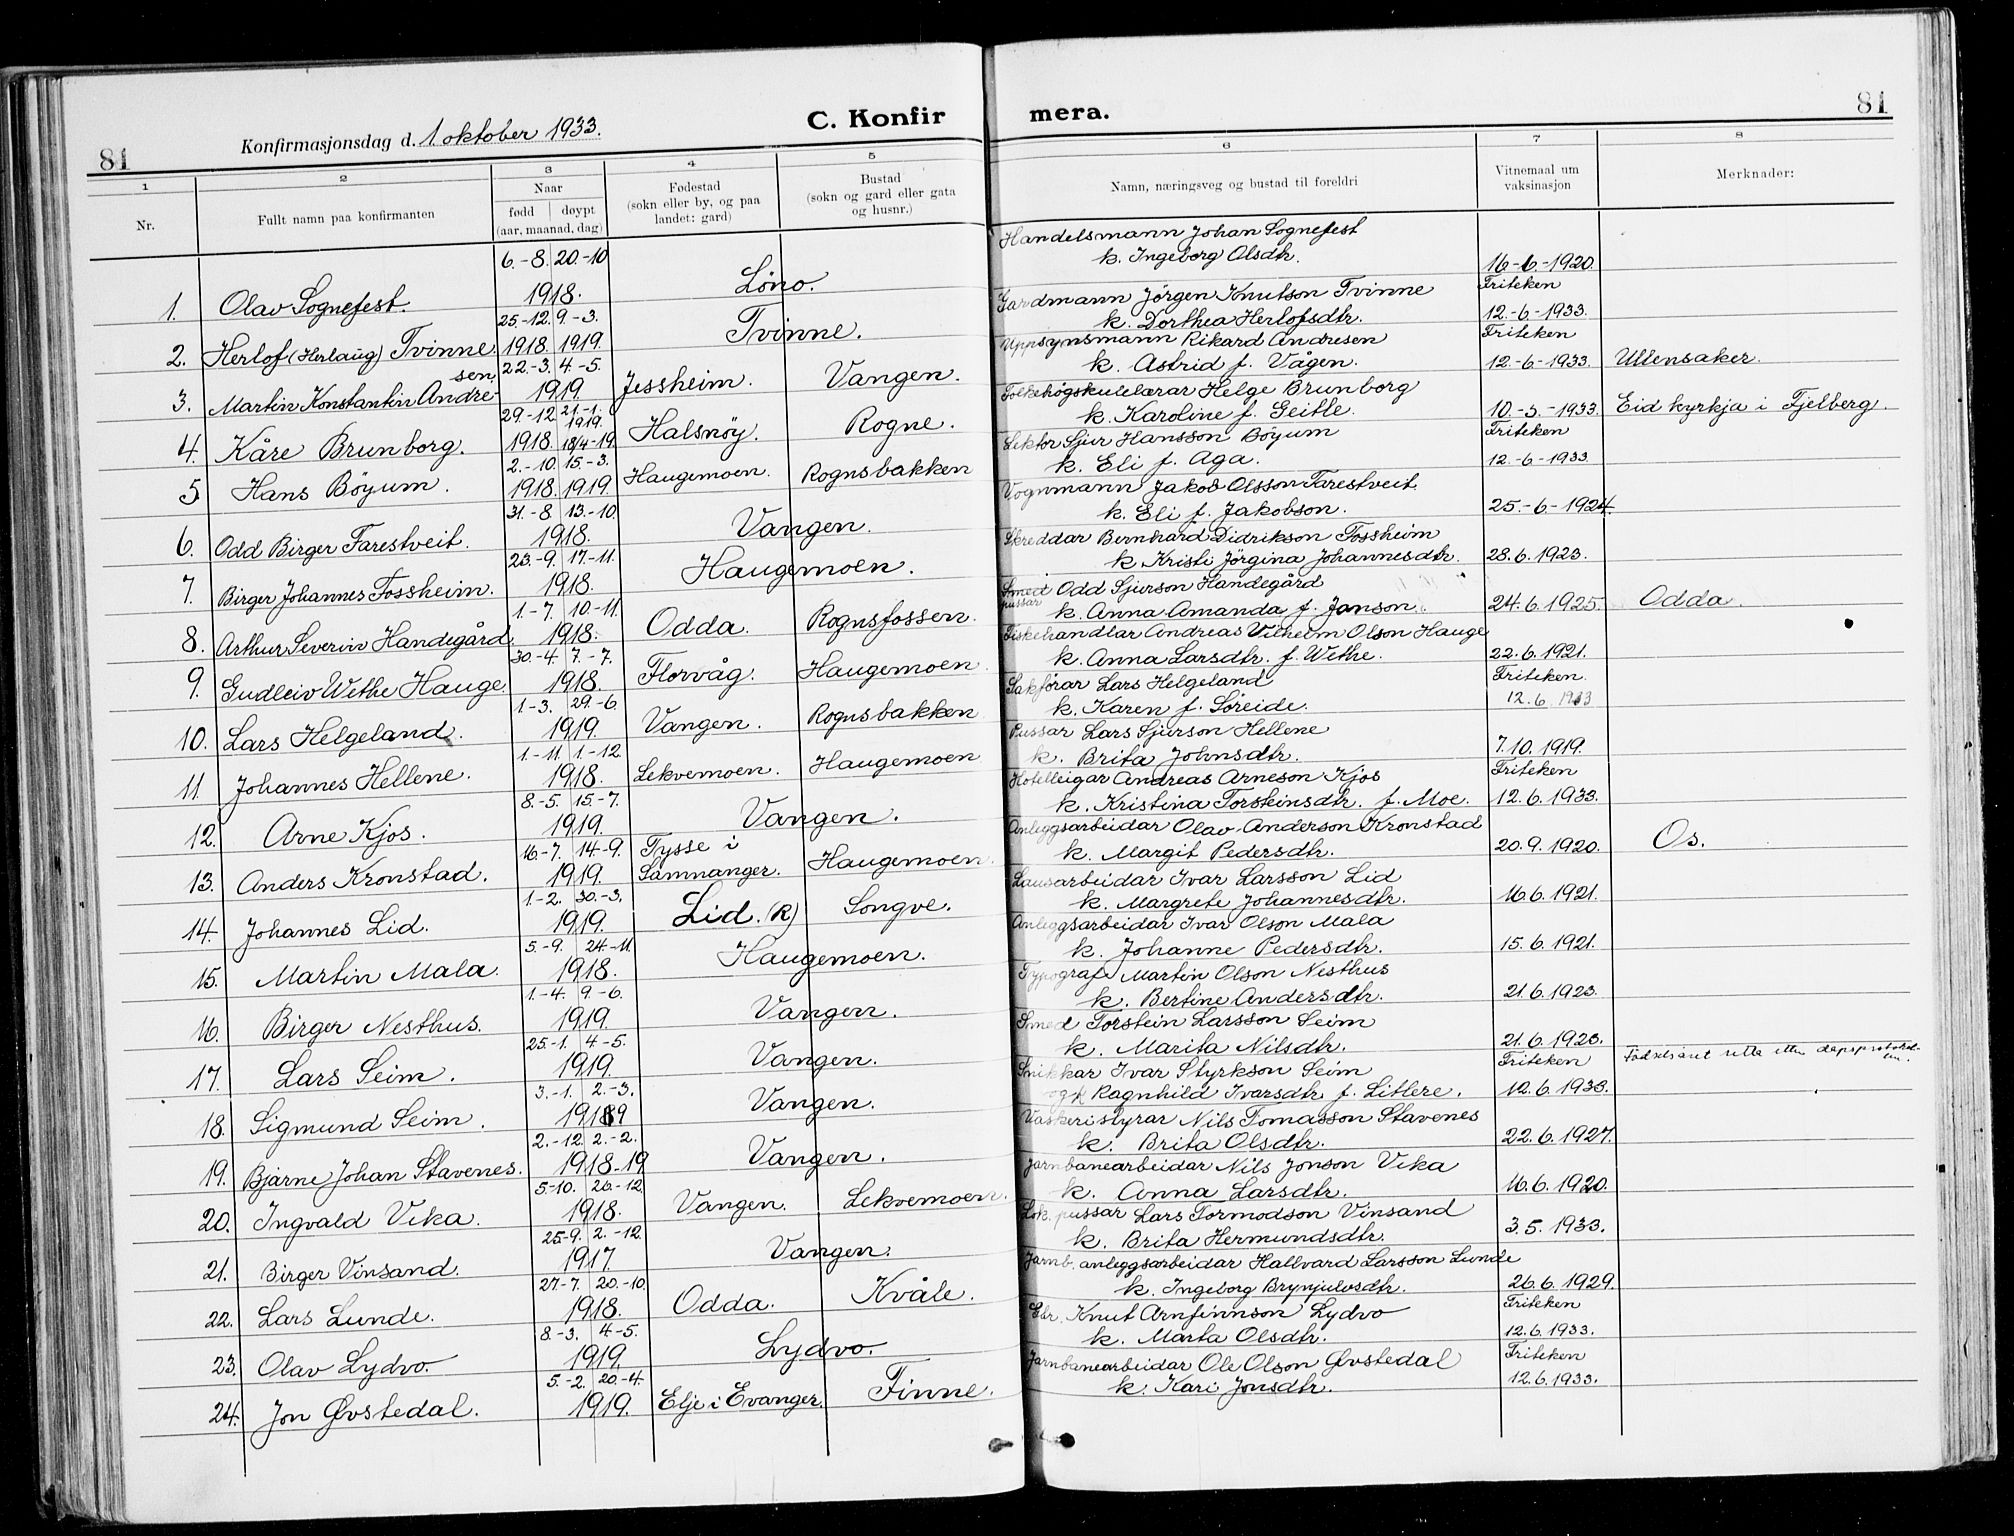 81
Konfirmasjonsdag d. 1. oktober 1933.
C. Konfir
mera.
81
1 2 3 4 5 6 7 8
Nr.
Fullt namn paa konfirmanten
Naar
fødd døypt
(aar, maanad, dag)
Fødestad
(sokn eller by, og paa
landet: gard)
Bustad
(sokn og gard eller gata
og husnr.)
Namn, næringsveg og bustad til foreldri
Vitnemaal um
vaksinasjon
Merknader:
6.-8. 20.-10 Handelsmann Johan Sognefest
1. Olav Sognefest. 1918. Löno. k. Ingeborg Olsdtr. 16-6-1920.
25.-12. 9.-3. Gardmann Jörgen Knutson Tvinne Friteken
2. Herlof (Herlaug) Tvinne 1918. 1919. Tvinne. k. Dorthea Herlofsdtr. 12.-6-1933.
sen. 22.-3. 4.-5. Uppsynsmann Rikard Andresen Friteken
3. Martin Konstantin Andre- 1919. Jessheim. Vangen. k. Astrid f. Vågen. 12.-6-1933. Ullensaker.
29.-12. 21.-1. 1919. Folkehögskulelærar Helge Brunborg
4. Kåre Brunborg. 1918. 18/4-19. Halsnöy. Rogne. k. Karoline f. Geitle. 10.-5.-1933. Eid kyrkja i Fjelberg.
2.-10. 15.-3. Lektor Sjur Hansson Böyum Friteken
5 Hans Böyum. 1918. 1919. Haugemoen. Rognsbakken k. Eli f. Aga. 12.-6-1933.
31.-8. 13.-10. Vognmann Jakob Olsson Farestveit
6. Odd Birger Farestveit. 1918. Vangen. k. Eli f. Jakobson. 25.-6-1924.
23.-9. 17.-11. Skreddar Bernhard Didrikson Fossheim
7. Birger Johannes Fossheim. 1918. Haugemoen. k. Kristi Jörgina Johannesdtr. 28.6.1923.
1.-7. 10-11. Smed pussar Odd Sjurson Handegård
8. Arthur Severin Handegård. 1918. Odda. Rognsfossen. k. Anna Amanda f. Janson. 24.6.1925. Odda.
30.-4. 7.-7. Fiskehandlar Andreas Vilhelm Olson Hauge
9. Gudleiv Wethe Hauge. 1918. Florvåg. Haugemoen k. Anna Larsdtr. f. Wethe. 22.6.1921.
1.-3. 29.-6. Sakförar Lars Helgeland Friteken.
10. Lars Helgeland. 1919. Vangen. Rognsbakken k. Karen f. Söreide. 12.6.1933
1.-11. 1.-12. Pussar Lars Sjurson Hellene
11. Johannes Hellene. 1918. Lekvemoen. Haugemoen k. Brita Johnsdtr. 7.10.1919.
8.-5. 15.-7. Hotelleigar Andreas Arneson Kjos Friteken
12. Arne Kjos. 1919. Vangen. k. Kristina Torsteinsdtr. f. Moe. 12.6.1933.
16.-7. 14.-9. Anleggsarbeidar Olav Anderson Kronstad
13. Anders Kronstad. 1919. Tysse i Samnanger. Haugemoen k. Margit Pedersdtr. 20.9.1920. Os.
1.-2. 30.-3. Lausarbeidar Ivar Larsson Lid
14. Johannes Lid. 1919. Lid. (R) Songve. k. Margrete Johannesdtr. 16.6.1921.
5.-9. 24-11. Anleggsarbeidar Ivar Olson Mala
15. Martin Mala. 1918. Haugemoen. k. Johanne Pedersdtr. 15.6.1921.
1.-4. 9.-6. Typograf Martin Olson Nesthus
16. Birger Nesthus. 1919. Vangen. k. Bertine Andersdtr. 21.6.1923.
25.-1. 4.-5. Smed Torstein Larsson Seim
17. Lars Seim. 1919. Vangen. k. Marita Nilsdtr. 21.6.1923.
3.-1. 2.-3. Snikkar Ivar Styrkson Seim Friteken Födselsåret retta etter dåpsprotokollen.
18. Sigmund Seim. 1919 Vangen. og k Ragnhild Ivarsdtr. f. Litlere. 12.6.1933.
2.-12. 2.-2. Vaskeristyrar Nils Tomasson Stavenes
19. Bjarne Johan Stavenes. 1918-19 Vangen. k. Brita Olsdtr. 22.6.1927.
5.-10. 26.-12. Jarnbanearbeidar Nils Jonson Vika
20. Ingvald Vika. 1918. Vangen. Lekvemoen k. Anna Larsdtr. 16.6.1920.
25.-9. 2.-12. Lok. pussar Lars Tormodson Vinsand
21. Birger Vinsand. 1917. Vangen. k. Brita Hermundsdtr. 3.5.1933.
27.-7. 20.-10. Jarnb. anleggsarbeidar Hallvard Larsson Lunde
22. Lars Lunde. 1918. Odda. Kvåle. k. Ingeborg Brynjulvsdtr. 26.6.1929.
8.-3. 4-5. Gbr. Knut Arnfinnson Lydvo Friteken
23. Olav Lydvo. 1919. Lydvo. k. Marta Olsdtr. 12.6.1933.
5.-2. 20.-4. Jarnbanearbeidar Ole Olson Øvstedal Friteken
24. Jon Øvstedal. 1919. Elje i Evanger. Finne. k. Kari Jonsdtr. 12.6.1933.